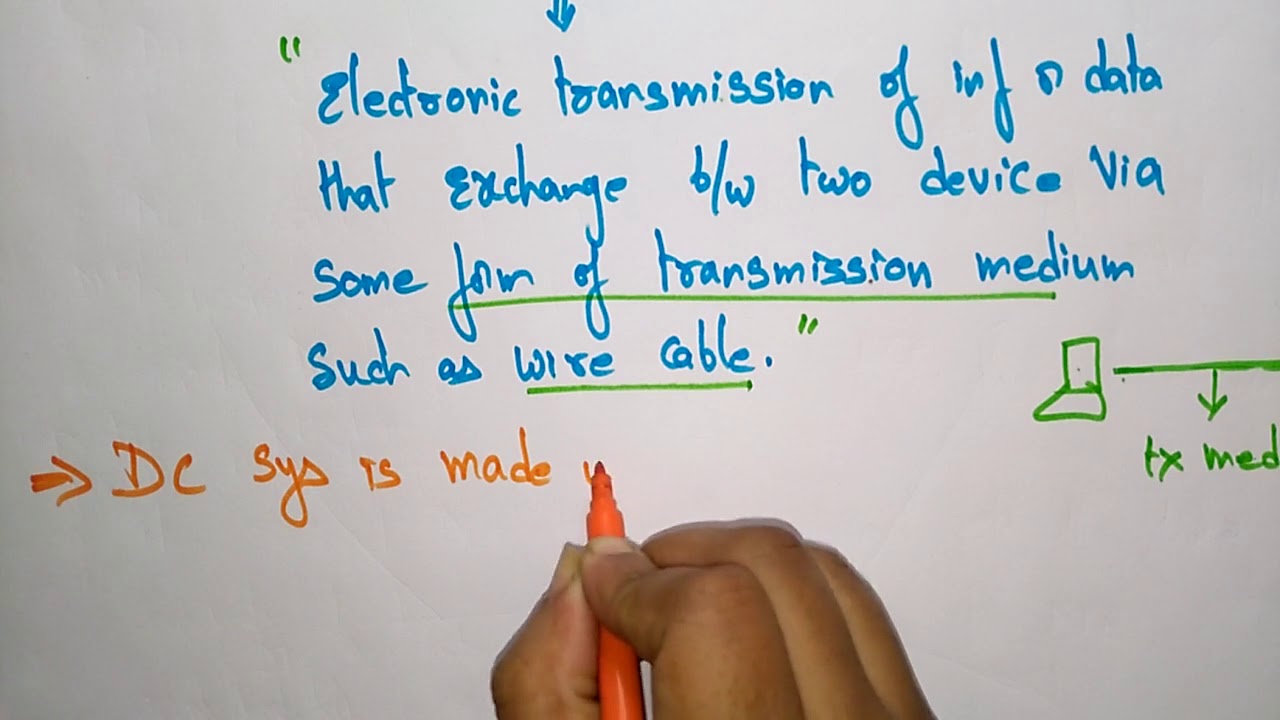 "Electronic transmission of inf or data
that exchange b/w two device Via
Some form of transmission medium
Such as wire cable."
tx med
⇒ DC sys is made u